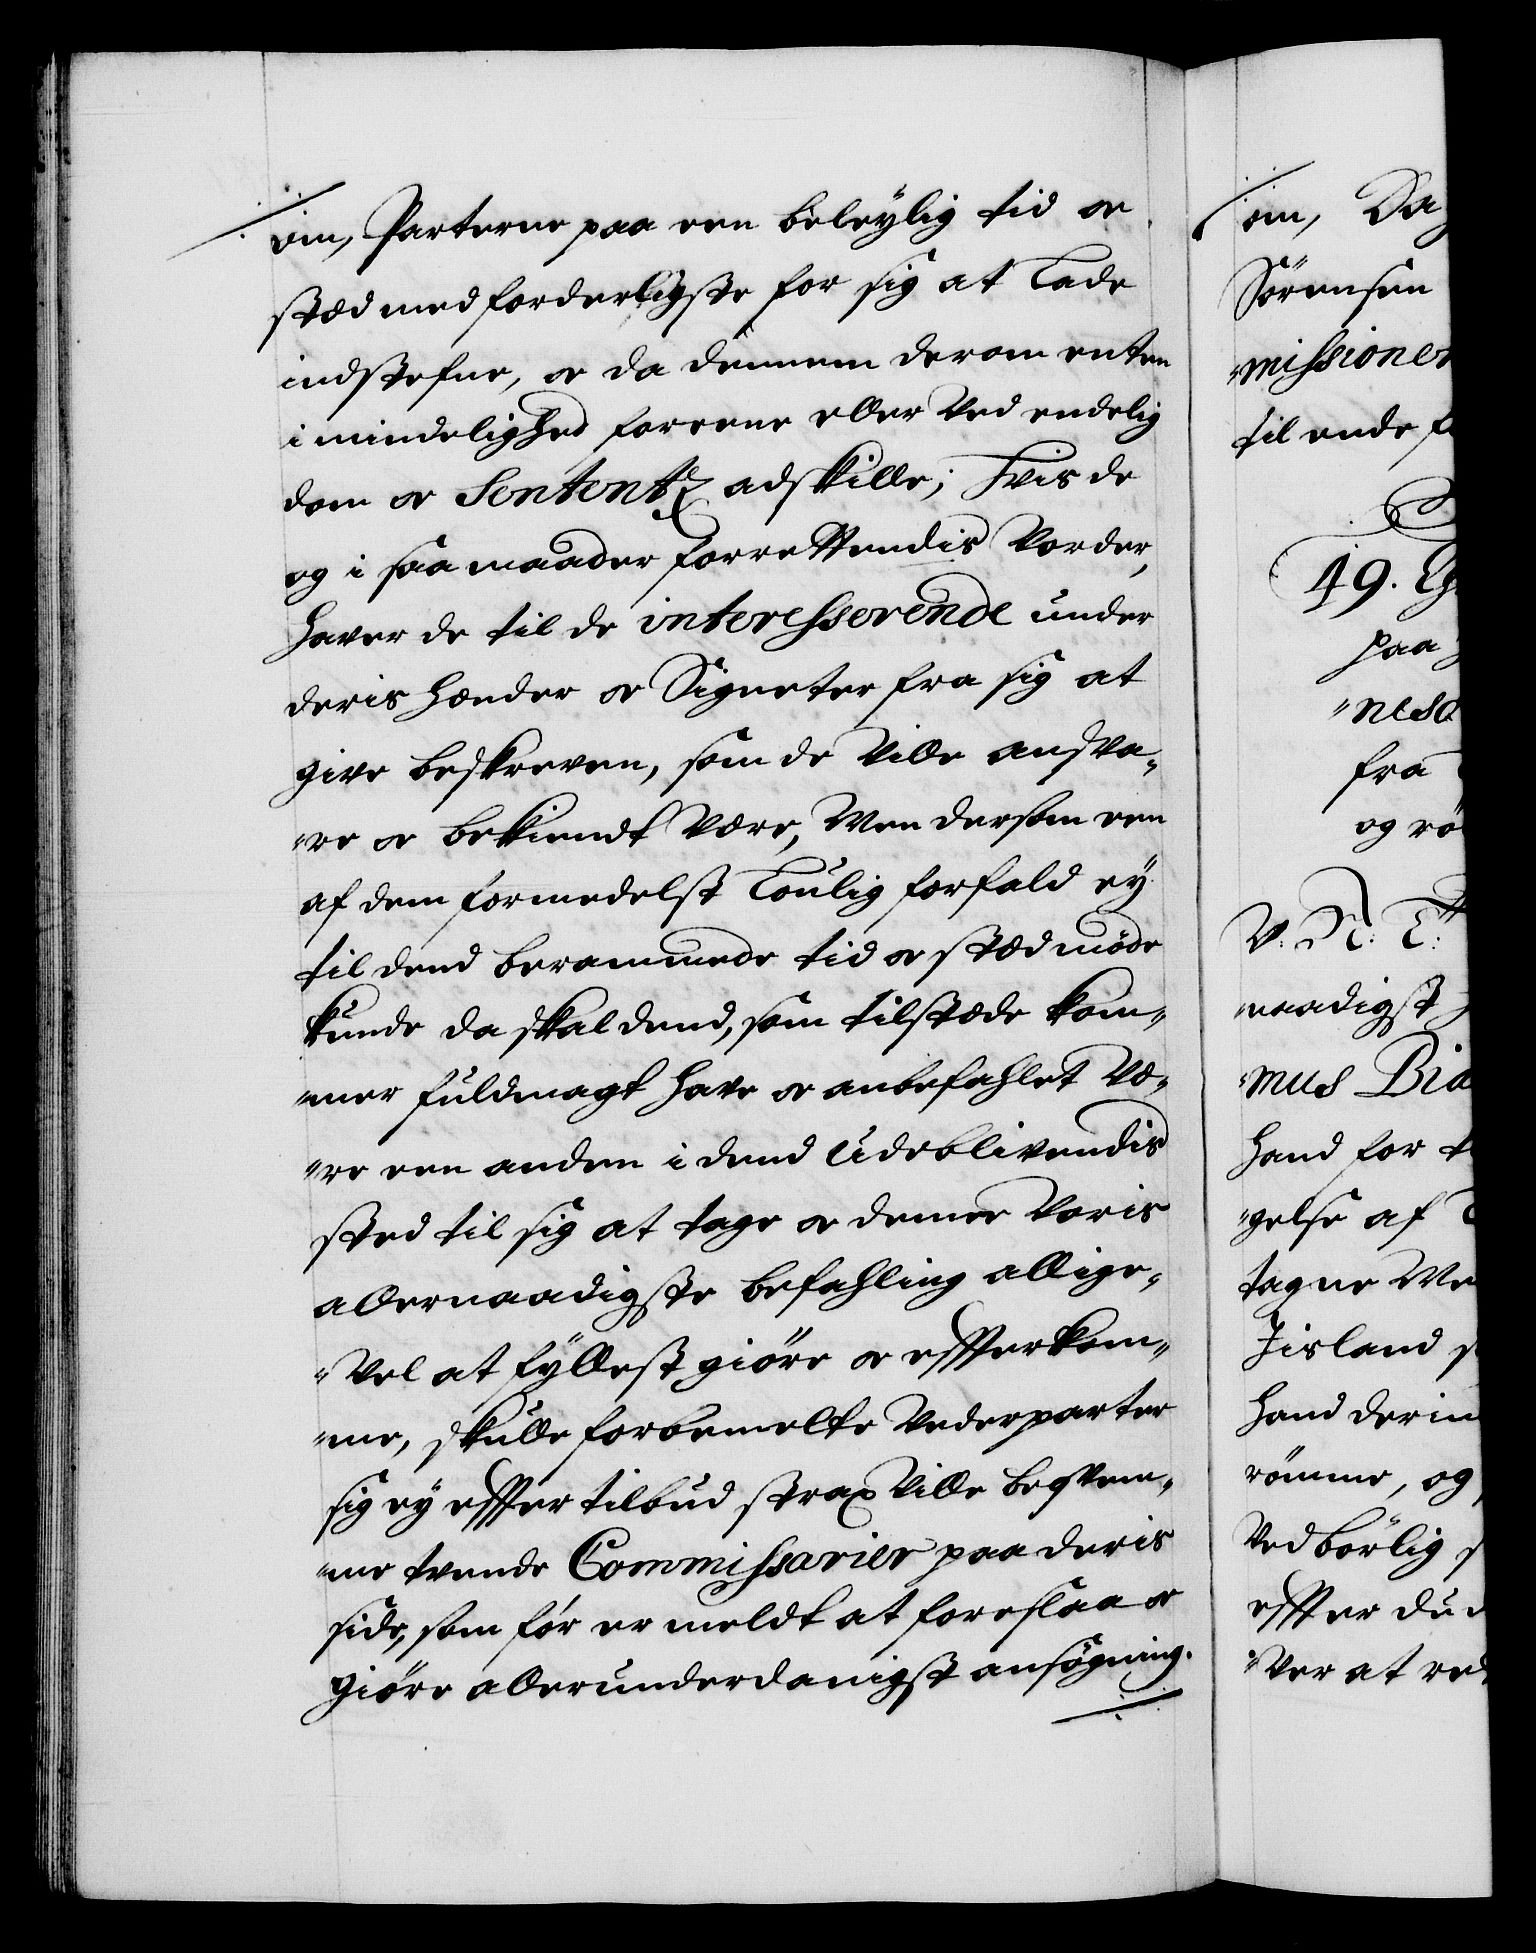 om, Parterne paa een beleÿlig tid oc
stæd med forderligste for sig at Lade
indstefne, oc da dennem derom enten
i mindelighed foreene eller Ved endelig
dom oc Sententz adskille; Hvis de
og i saa maader forrettendis Vorder,
haver de til de interesserende under
deris Hænder oc Signeter fra sig at
give beskreven, som de Ville andsva„
„re oc bekiendt Være, Men dersom een
af dem formedelst Loulig forfald eÿ
til dend berammede tid oc stæd møde
kunde da skal dend, som tilstæde kom„
„mer fuldmagt have oc anbefahlet Væ„
„re een anden i dend Udeblivendis
sted til sig at tage oc denne Voris
allernaadigste befahling allige„
„Vel at fÿllestgiöre oc effterkom„
„me, skulle forbemelte Vederparter
sig eÿ effter tilbud strax Ville beqvem„
„me tvende Commissarier paa deris
side, som för er meldt at foreslaa oc
giöre allerunderdanigst ansögning.
om, Da
Sörensen
„missioner
til ende
49.
paa
„nesa
fra
og rö
V: A: T:
naadigst
„mus Bia
hand for
„gelse af
tagne
Jisland
hand derin
römme, og
Ved börlig
effter du
„Ver at